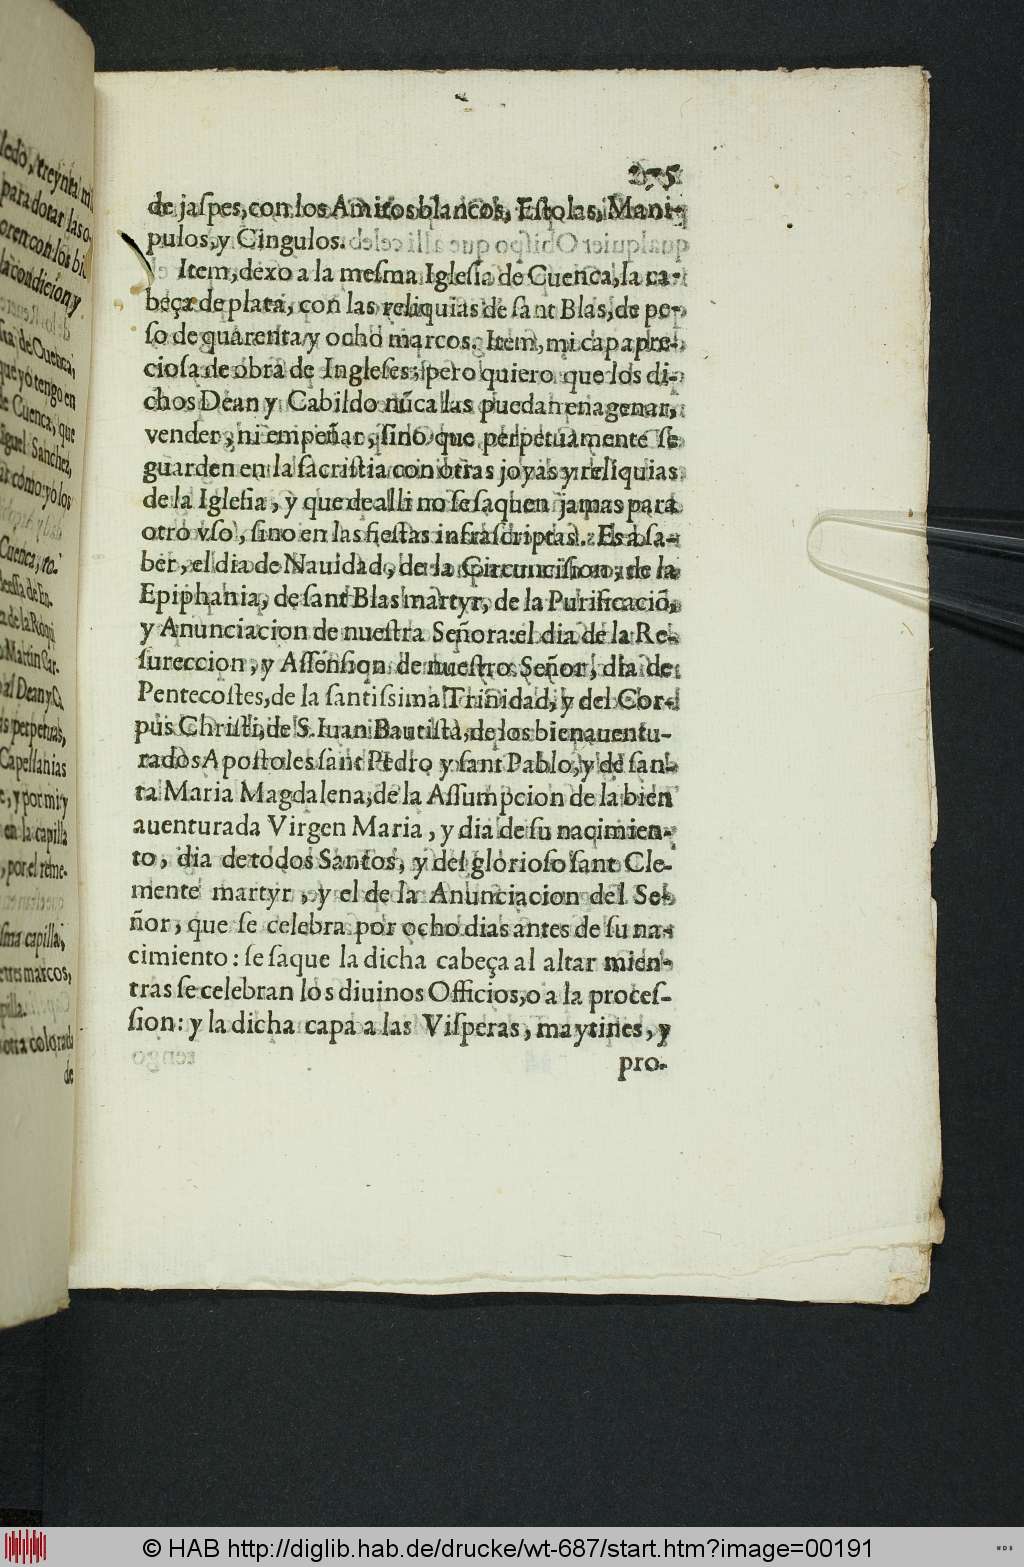 ledo, treynta mi
para dotar las o-
oren con los bi
la condicion y
de Cuenca,
que yo tengo en
de Cuenca, que
Miguel Sanchez,
como yo los
Cuenca, to-
de la Roqui
Martin Car-
al Dean y Ca
perpetuas,
Capellanias
, y por mi, y
en la capilla
, por el reme-
sma capilla,
marcos,
pilla.
otra colorada
de
275
de jaſpes, con los Amitos blancos, Eſtolas, Mani-
pulos, y Cingulos.
Item, dexo a la meſma Igleſia de Cuenca, la ca-
beça de plata, con las reliquias de ſant Blas, de pe-
ſo de quarenta y ocho marcos. Item, mi capa pre-
cioſa de obra de Ingleſes; pero quiero que los di-
chos Dean y Cabildo nũca las puedan enagenar,
vender, ni empeñar, ſino que perpetuamente ſe
guarden en la ſacriſtia con otras joyas y reliquias
de la Igleſia, y que de alli no ſe ſaquen jamas para
otro vſo, ſino en las fieſtas infraſcriptas. Es a ſa-
ber, el dia de Nauidad, de la Circunciſion, de la
Epiphania, de ſant Blas martyr, de la Purificaciõ,
y Anunciacion de nueſtra Señora: el dia de la Re-
ſureccion, y Aſſenſion de nueſtro Señor, dia de
Pentecoſtes, de la ſantiſsima Trinidad, y del Cor-
pus Chriſti, de S. Iuan Bautiſta, de los bienauentu-
rados Apoſtoles ſant Pedro y ſant Pablo, y de ſan-
ta Maria Magdalena, de la Aſſumpcion de la bien
auenturada Virgen Maria, y dia de ſu nacimien-
to, dia de todos Santos, y del glorioſo ſant Cle-
mente martyr, y el de la Anunciacion del Se-
ñor, que ſe celebra por ocho dias antes de ſu na-
cimiento: ſe ſaque la dicha cabeça al altar mien-
tras ſe celebran los diuinos Officios, o a la proceſ-
ſion: y la dicha capa a las Viſperas, maytines, y
pro-
© HAB http://diglib.hab.de/drucke/wt-687/start.htm?image=00191